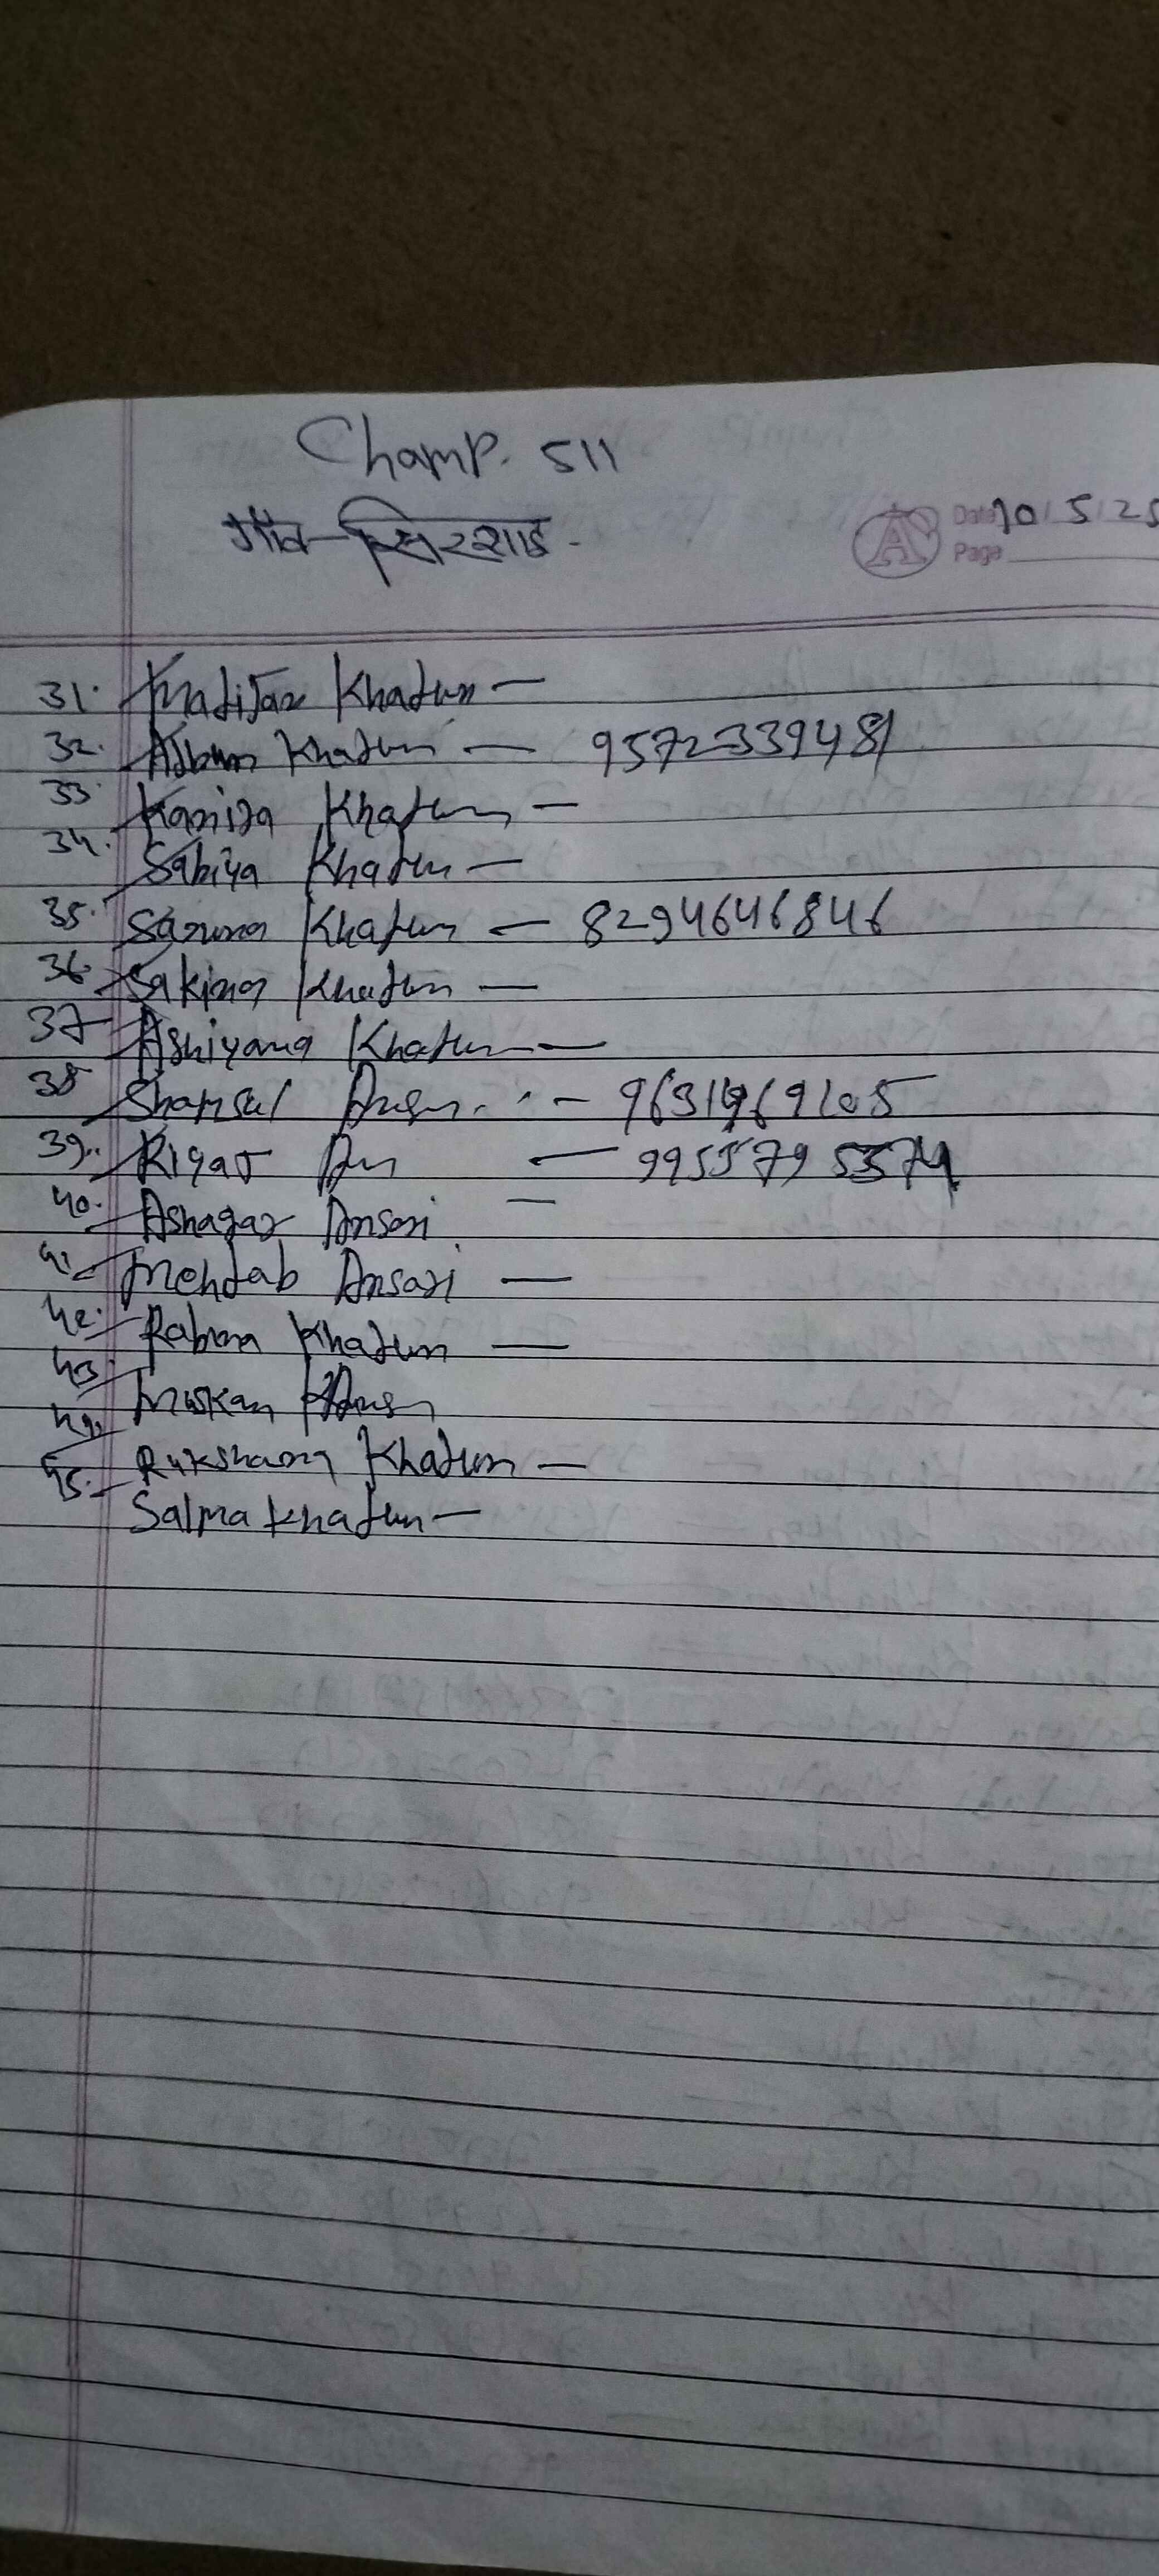 Champ. 511
गाँव-सिरशाड.
Date 10 5 25
Page
31. Khatun —
32. Khatun — 9572339481
33. Kaniza Khatun —
34. Sabiya Khatun —
35. Khatun — 8294646846
36. Sakina Khatun —
37 Ashiyana Khatun —
38 Shamsul
39. Riyaj — 9955795374
40. Ashagar Ansari —
41. Mehtab Ansari —
42. Khatun —
43. Muskan
44. Rukshana Khatun —
45. Salma Khatun —